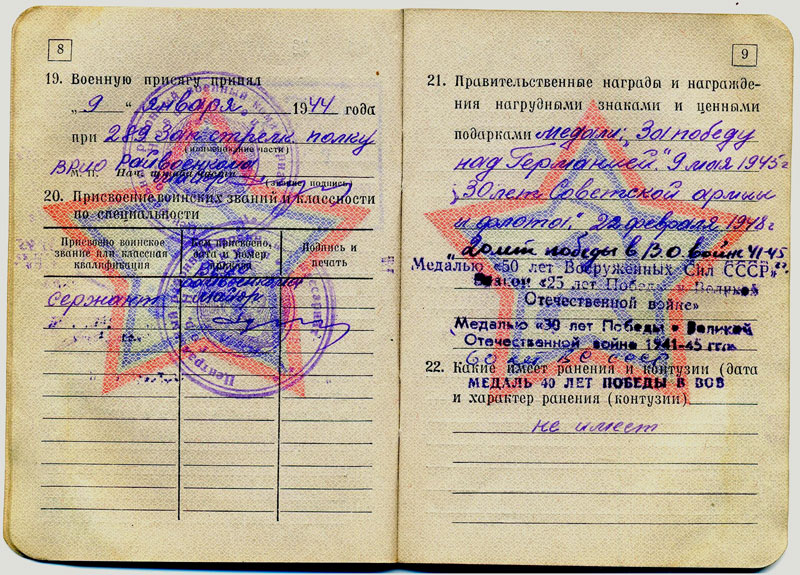 8
19. Военную присягу принял
„ 9 " января 1944 года
при 289 Зап. стрелк. полку
(наименование части)
ВРИО Райвоенкома
М. П. Нач. штаба части
(звание, подпись)
20. Присвоение воинских званий и классности
по специальности
Присвоено воинское
звание или классная
квалификация
Кем присвоено,
дата и номер
приказа
Подпись и
печать
райвоенком
сержант майор
9
21. Правительственные награды и награжде-
ния нагрудными знаками и ценными
подарками медали „За победу
над Германией." 9 мая 1945 г
„30 лет Советской армии
и флота", 22 февраля 1948 г
„20 лет победы в В.О. войн 41-45
Медалью «50 лет Вооруженных Сил СССР»
Знаком «25 лет Победы в Великой
Отечественной войне»
Медалью «30 лет Победы в Великой
Отечественной войне 1941-45 гг.»
60 лет ВС СССР
22. Какие имеет ранения и контузии (дата
МЕДАЛЬ 40 ЛЕТ ПОБЕДЫ В ВОВ
и характер ранения (контузии)
не имеет